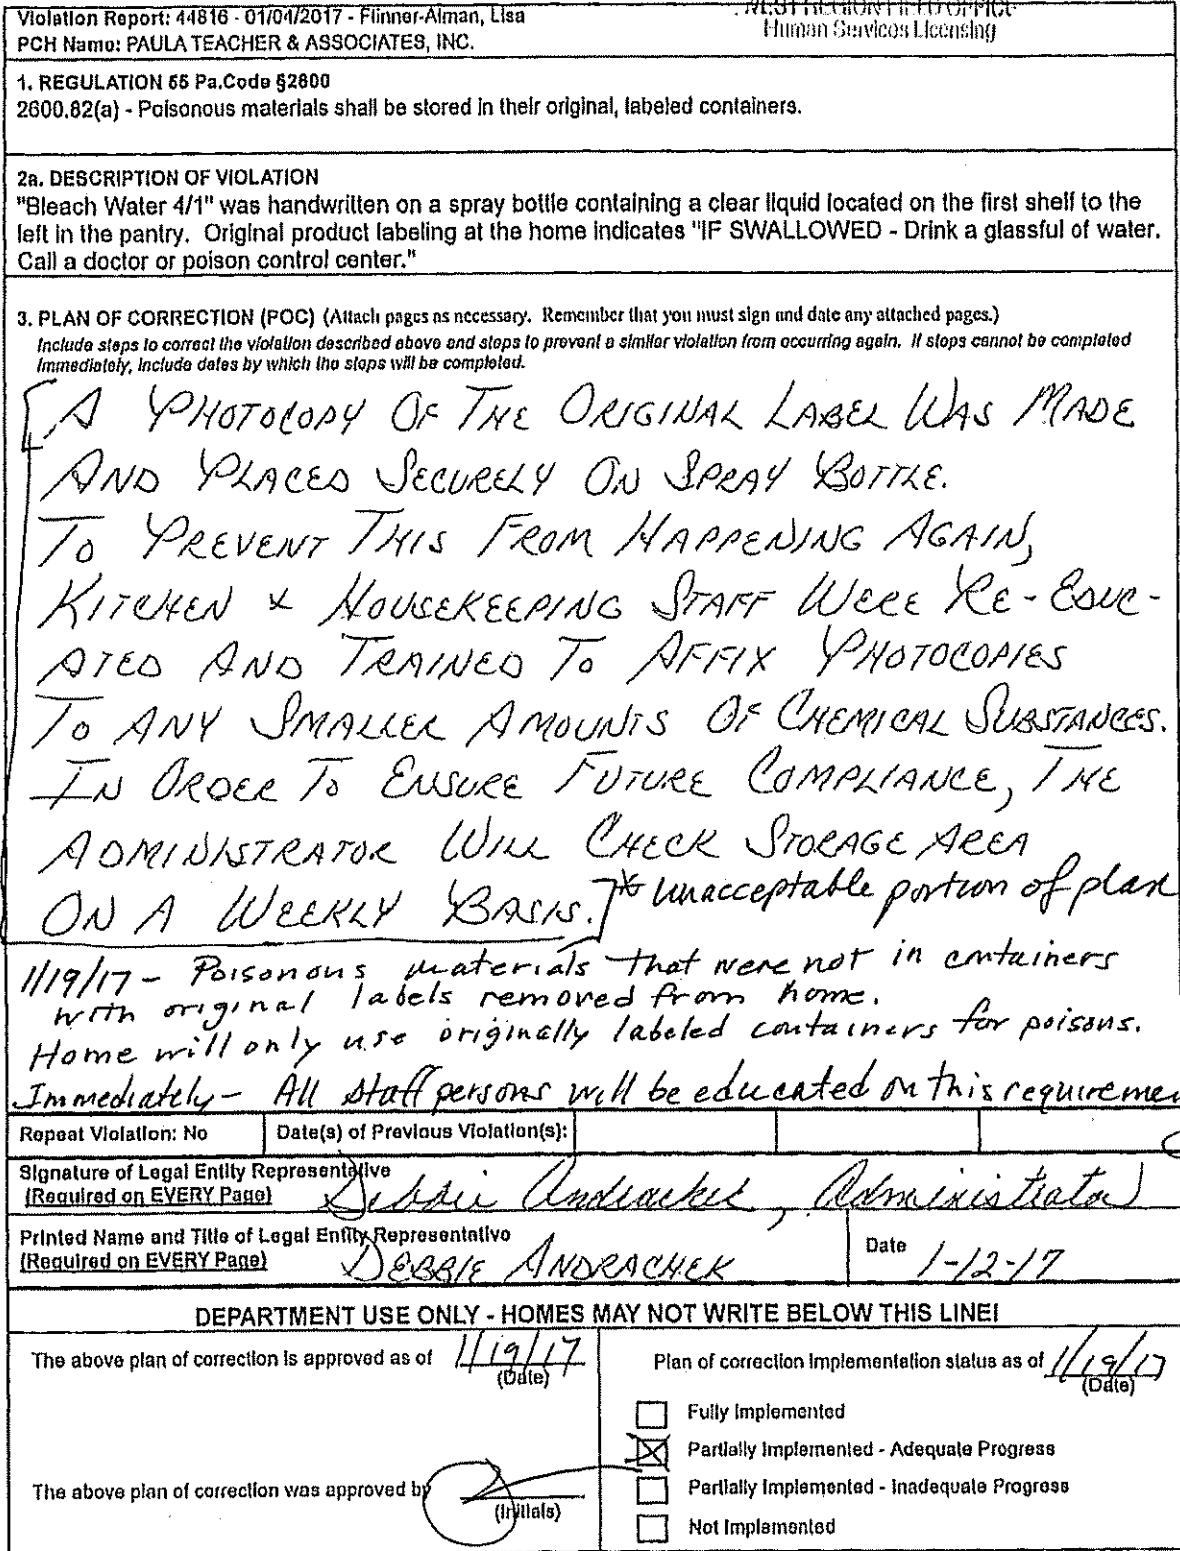 Violation Report: 44816 - 01/04/2017 - Flinner-Alman, Lisa
WEST REGION FIELD OFFICE
PCH Name: PAULA TEACHER & ASSOCIATES, INC.
Human Services Licensing
1. REGULATION 55 Pa.Code §2600
2600.82(a) - Poisonous materials shall be stored in their original, labeled containers.
2a. DESCRIPTION OF VIOLATION
"Bleach Water 4/1" was handwritten on a spray bottle containing a clear liquid located on the first shelf to the
left in the pantry. Original product labeling at the home indicates "IF SWALLOWED - Drink a glassful of water.
Call a doctor or poison control center."
3. PLAN OF CORRECTION (POC) (Attach pages as necessary. Remember that you must sign and date any attached pages.)
Include steps to correct the violation described above and steps to prevent a similar violation from occurring again. If steps cannot be completed
immediately, include dates by which the steps will be completed.
A PHOTOCOPY OF THE ORIGINAL LABEL WAS MADE
AND PLACED SECURELY ON SPRAY BOTTLE.
TO PREVENT THIS FROM HAPPENING AGAIN,
KITCHEN & HOUSEKEEPING STAFF WERE RE-EDUC-
ATED AND TRAINED TO AFFIX PHOTOCOPIES
TO ANY SMALLER AMOUNTS OF CHEMICAL SUBSTANCES.
IN ORDER TO ENSURE FUTURE COMPLIANCE, THE
ADMINISTRATOR WILL CHECK STORAGE AREA
ON A WEEKLY BASIS.] * unacceptable portion of plan
1/19/17 - Poisonous materials that were not in containers
with original labels removed from home.
Home will only use originally labeled containers for poisons.
Immediately - All staff persons will be educated on this requiremen
Repeat Violation: No
Date(s) of Previous Violation(s):
Signature of Legal Entity Representative
(Required on EVERY Page) Debbie Andrachek, Administrator
Printed Name and Title of Legal Entity Representative
(Required on EVERY Page) DEBBIE ANDRACHEK
Date 1-12-17
DEPARTMENT USE ONLY - HOMES MAY NOT WRITE BELOW THIS LINE!
The above plan of correction is approved as of 1/19/17
(Date)
Plan of correction implementation status as of 1/19/17
(Date)
Fully Implemented
Partially Implemented - Adequate Progress
Partially Implemented - Inadequate Progress
Not Implemented
The above plan of correction was approved by
(Initials)